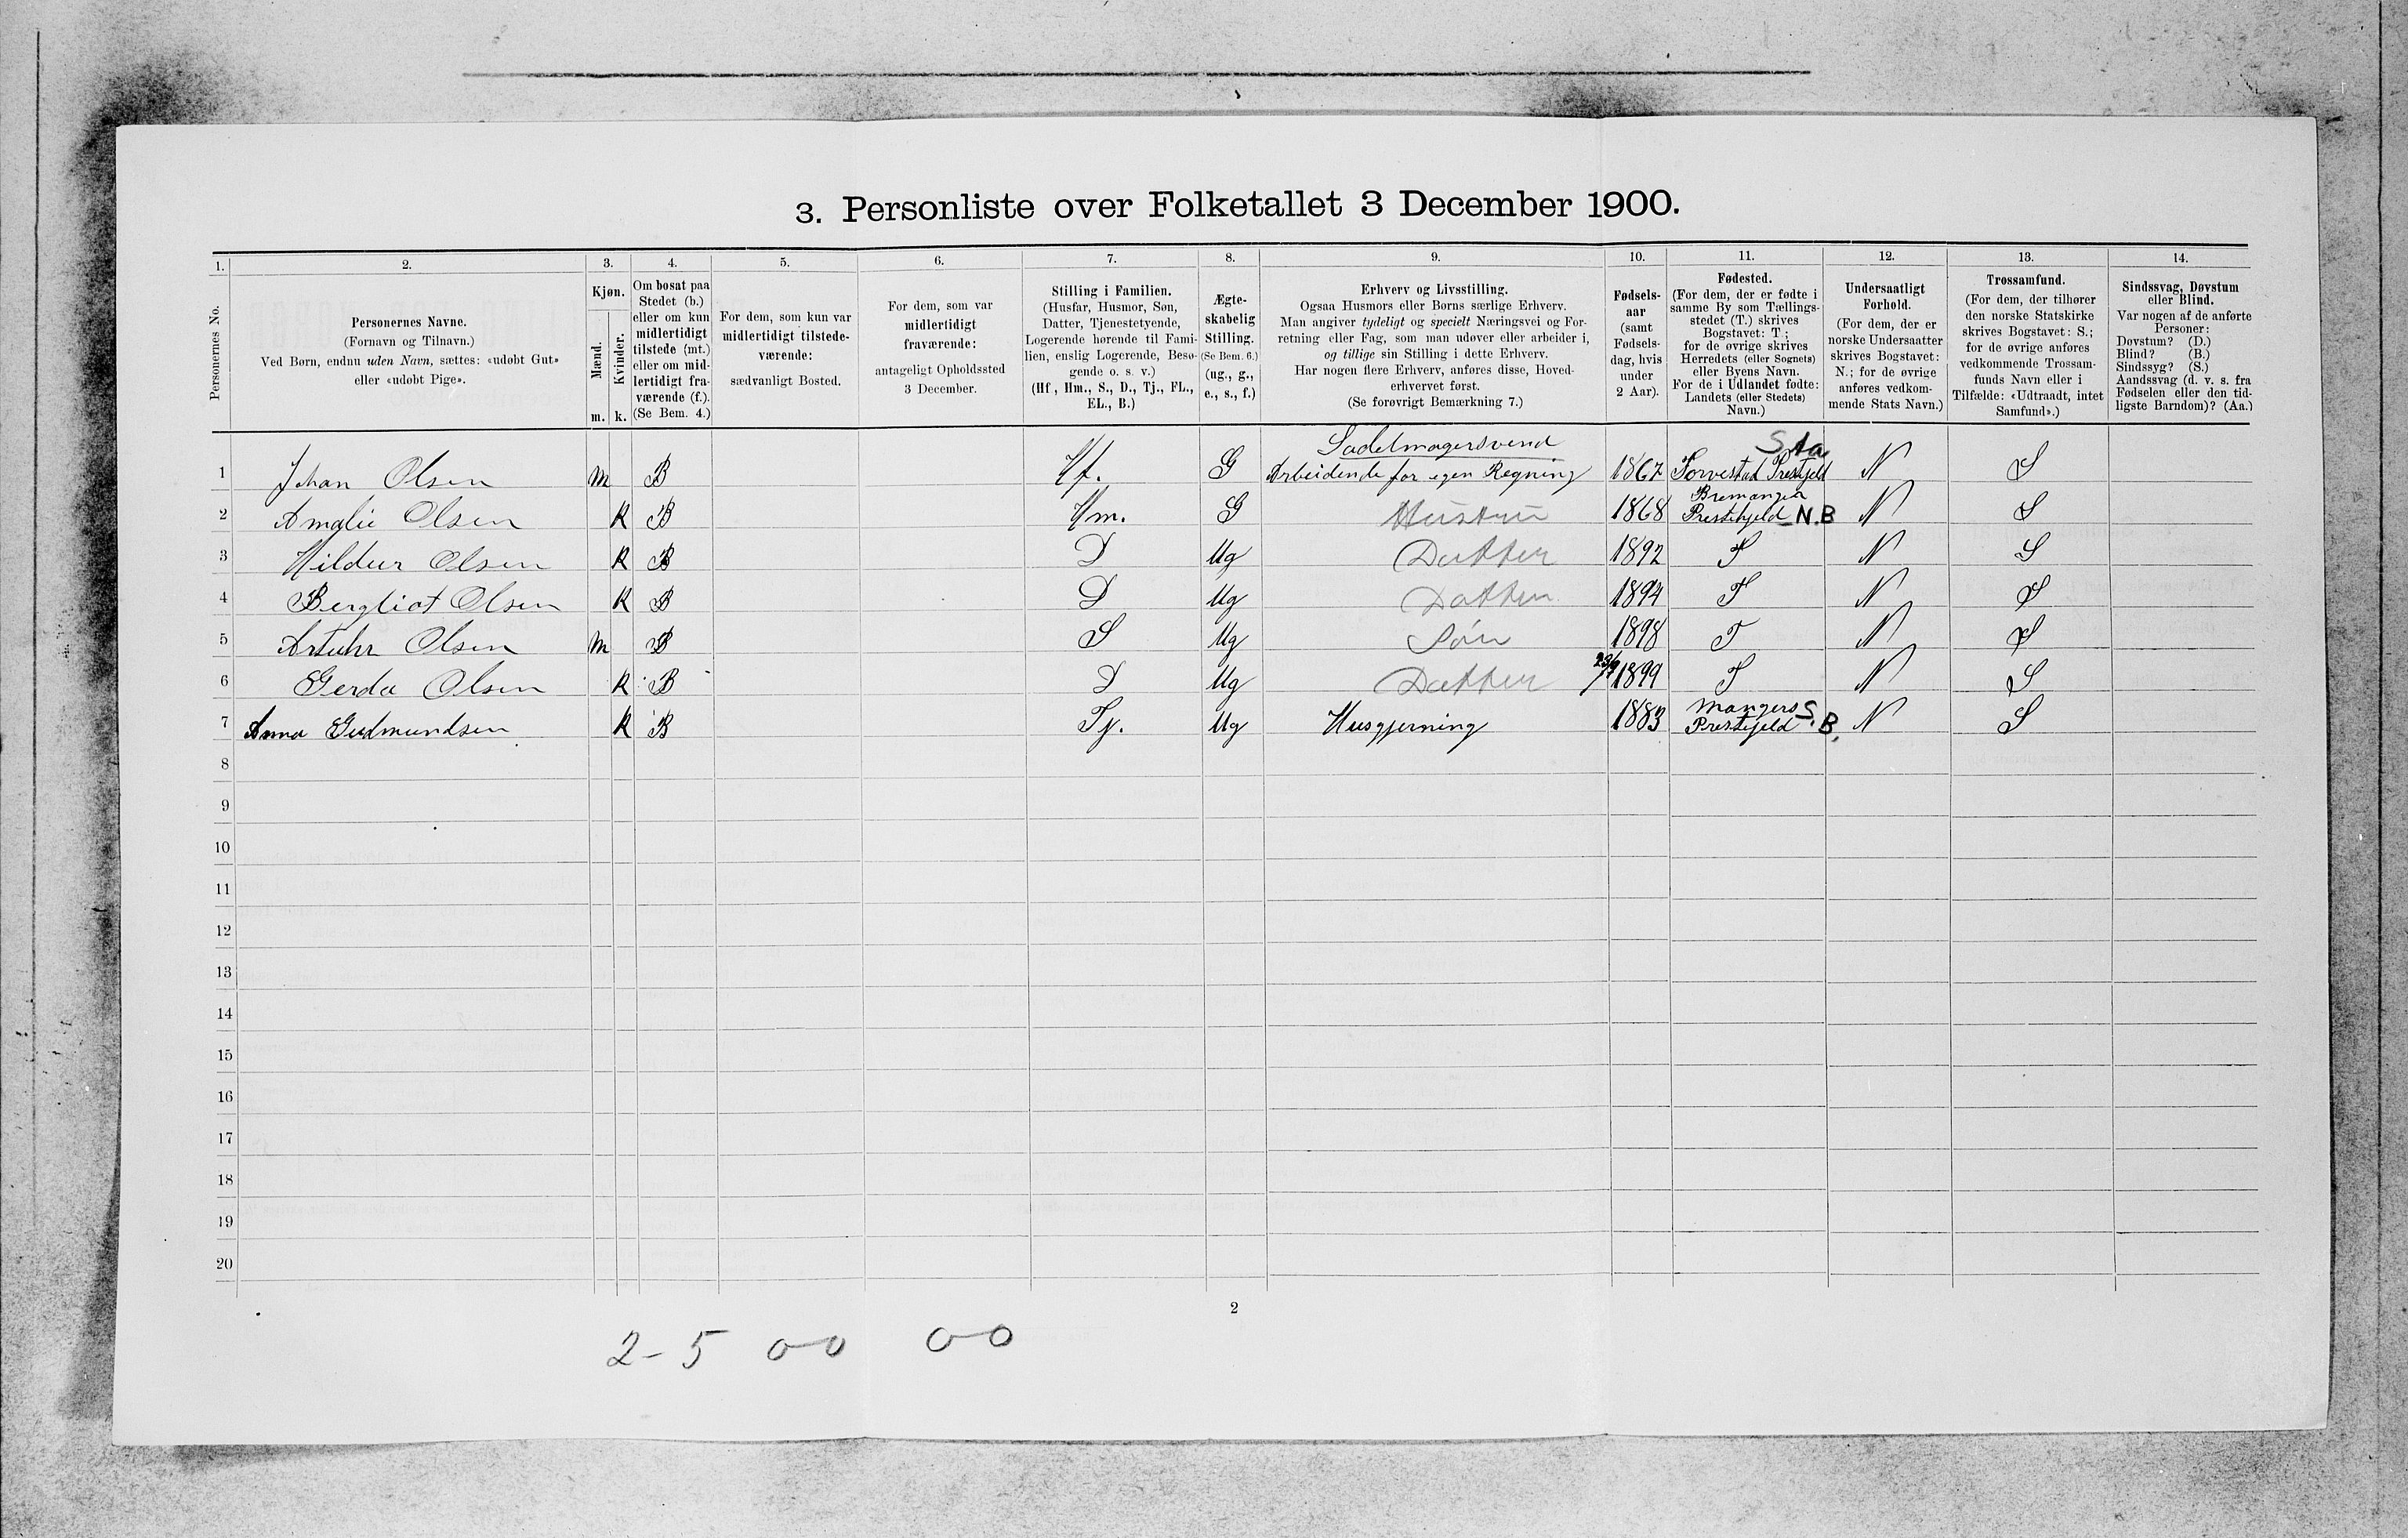 3. Personliste over Folketallet 3 December 1900.
1. 2. 3. 4. 5. 6. 7. 8. 9. 10. 11. 12. 13. 14.
Personernes No.
Personernes Navne.
(Fornavn og Tilnavn.)
Ved Børn, endnu uden Navn, sættes: «udøbt Gut»
eller «udøbt Pige».
Kjøn.
Mænd.
Kvinder.
m. k.
Om bosat paa
Stedet (b.)
eller om kun
midlertidigt
tilstede (mt.)
eller om mid-
lertidigt fra-
værende (f.).
(Se Bem. 4.)
For dem, som kun var
midlertidigt tilstede-
værende:
sædvanligt Bosted.
For dem, som var
midlertidigt
fraværende:
antageligt Opholdssted
3 December.
Stilling i Familien.
(Husfar, Husmor, Søn,
Datter, Tjenestetyende,
Logerende hørende til Fami-
lien, enslig Logerende, Besø-
gende o. s. v.)
(Hf., Hm., S., D., Tj., FL.,
EL., B.)
Ægte-
skabelig
Stilling.
(Se Bem. 6.)
(ug., g.,
e., s., f.)
Erhverv og Livsstilling.
Ogsaa Husmors eller Børns særlige Erhverv.
Man angiver tydeligt og specielt Næringsvei og For-
retning eller Fag, som man udøver eller arbeider i,
og tillige sin Stilling i dette Erhverv.
Har nogen flere Erhverv, anføres disse, Hoved-
erhvervet først.
(Se forøvrigt Bemærkning 7.)
Fødsels-
aar
(samt
Fødsels-
dag, hvis
under
2 Aar).
Fødested.
(For dem, der er fødte i
samme By som Tællings-
stedet (T.) skrives
Bogstavet: T;
for de øvrige skrives
Herredets (eller Sognets)
eller Byens Navn.
For de i Udlandet fødte:
Landets (eller Stedets)
Navn.)
Undersaatligt
Forhold.
(For dem, der er
norske Undersaatter
skrives Bogstavet:
N.; for de øvrige
anføres vedkom-
mende Stats Navn.)
Trossamfund.
(For dem, der tilhører
den norske Statskirke
skrives Bogstavet: S.;
for de øvrige anføres
vedkommende Trossam-
funds Navn eller i
Tilfælde: «Udtraadt, intet
Samfund».)
Sindssvag, Døvstum
eller Blind.
Var nogen af de anførte
Personer:
Døvstum? (D.)
Blind? (B.)
Sindssyg? (S.)
Aandssvag (d. v. s. fra
Fødselen eller den tid-
ligste Barndom)? (Aa.)
Sadelmagersvend Sta
1 Johan Olsen m B Hf. G Arbeidende for egen Regning 1867 Torvestad Prestjeld N S
Bremanger
2 Amalie Olsen k B Hm. G Hustru 1868 Prestehjeld N.B N S
3 Hildur Olsen k B D Ug Datter 1892 T N S
4 Bergliot Olsen k B D Ug Datter 1894 T N S
5 Artuhr Olsen m B S Ug Søn 1898 T N S
6 Gerda Olsen k B D Ug Datter 1899 T N S
Mangers S.
7 Anna Gudmundsen k B Tj. Ug Husgjerning 1883 Prestejeld B. N S
8
9
10
11
12
13
14
15
16
17
18
19
20
2
2-5 00 00